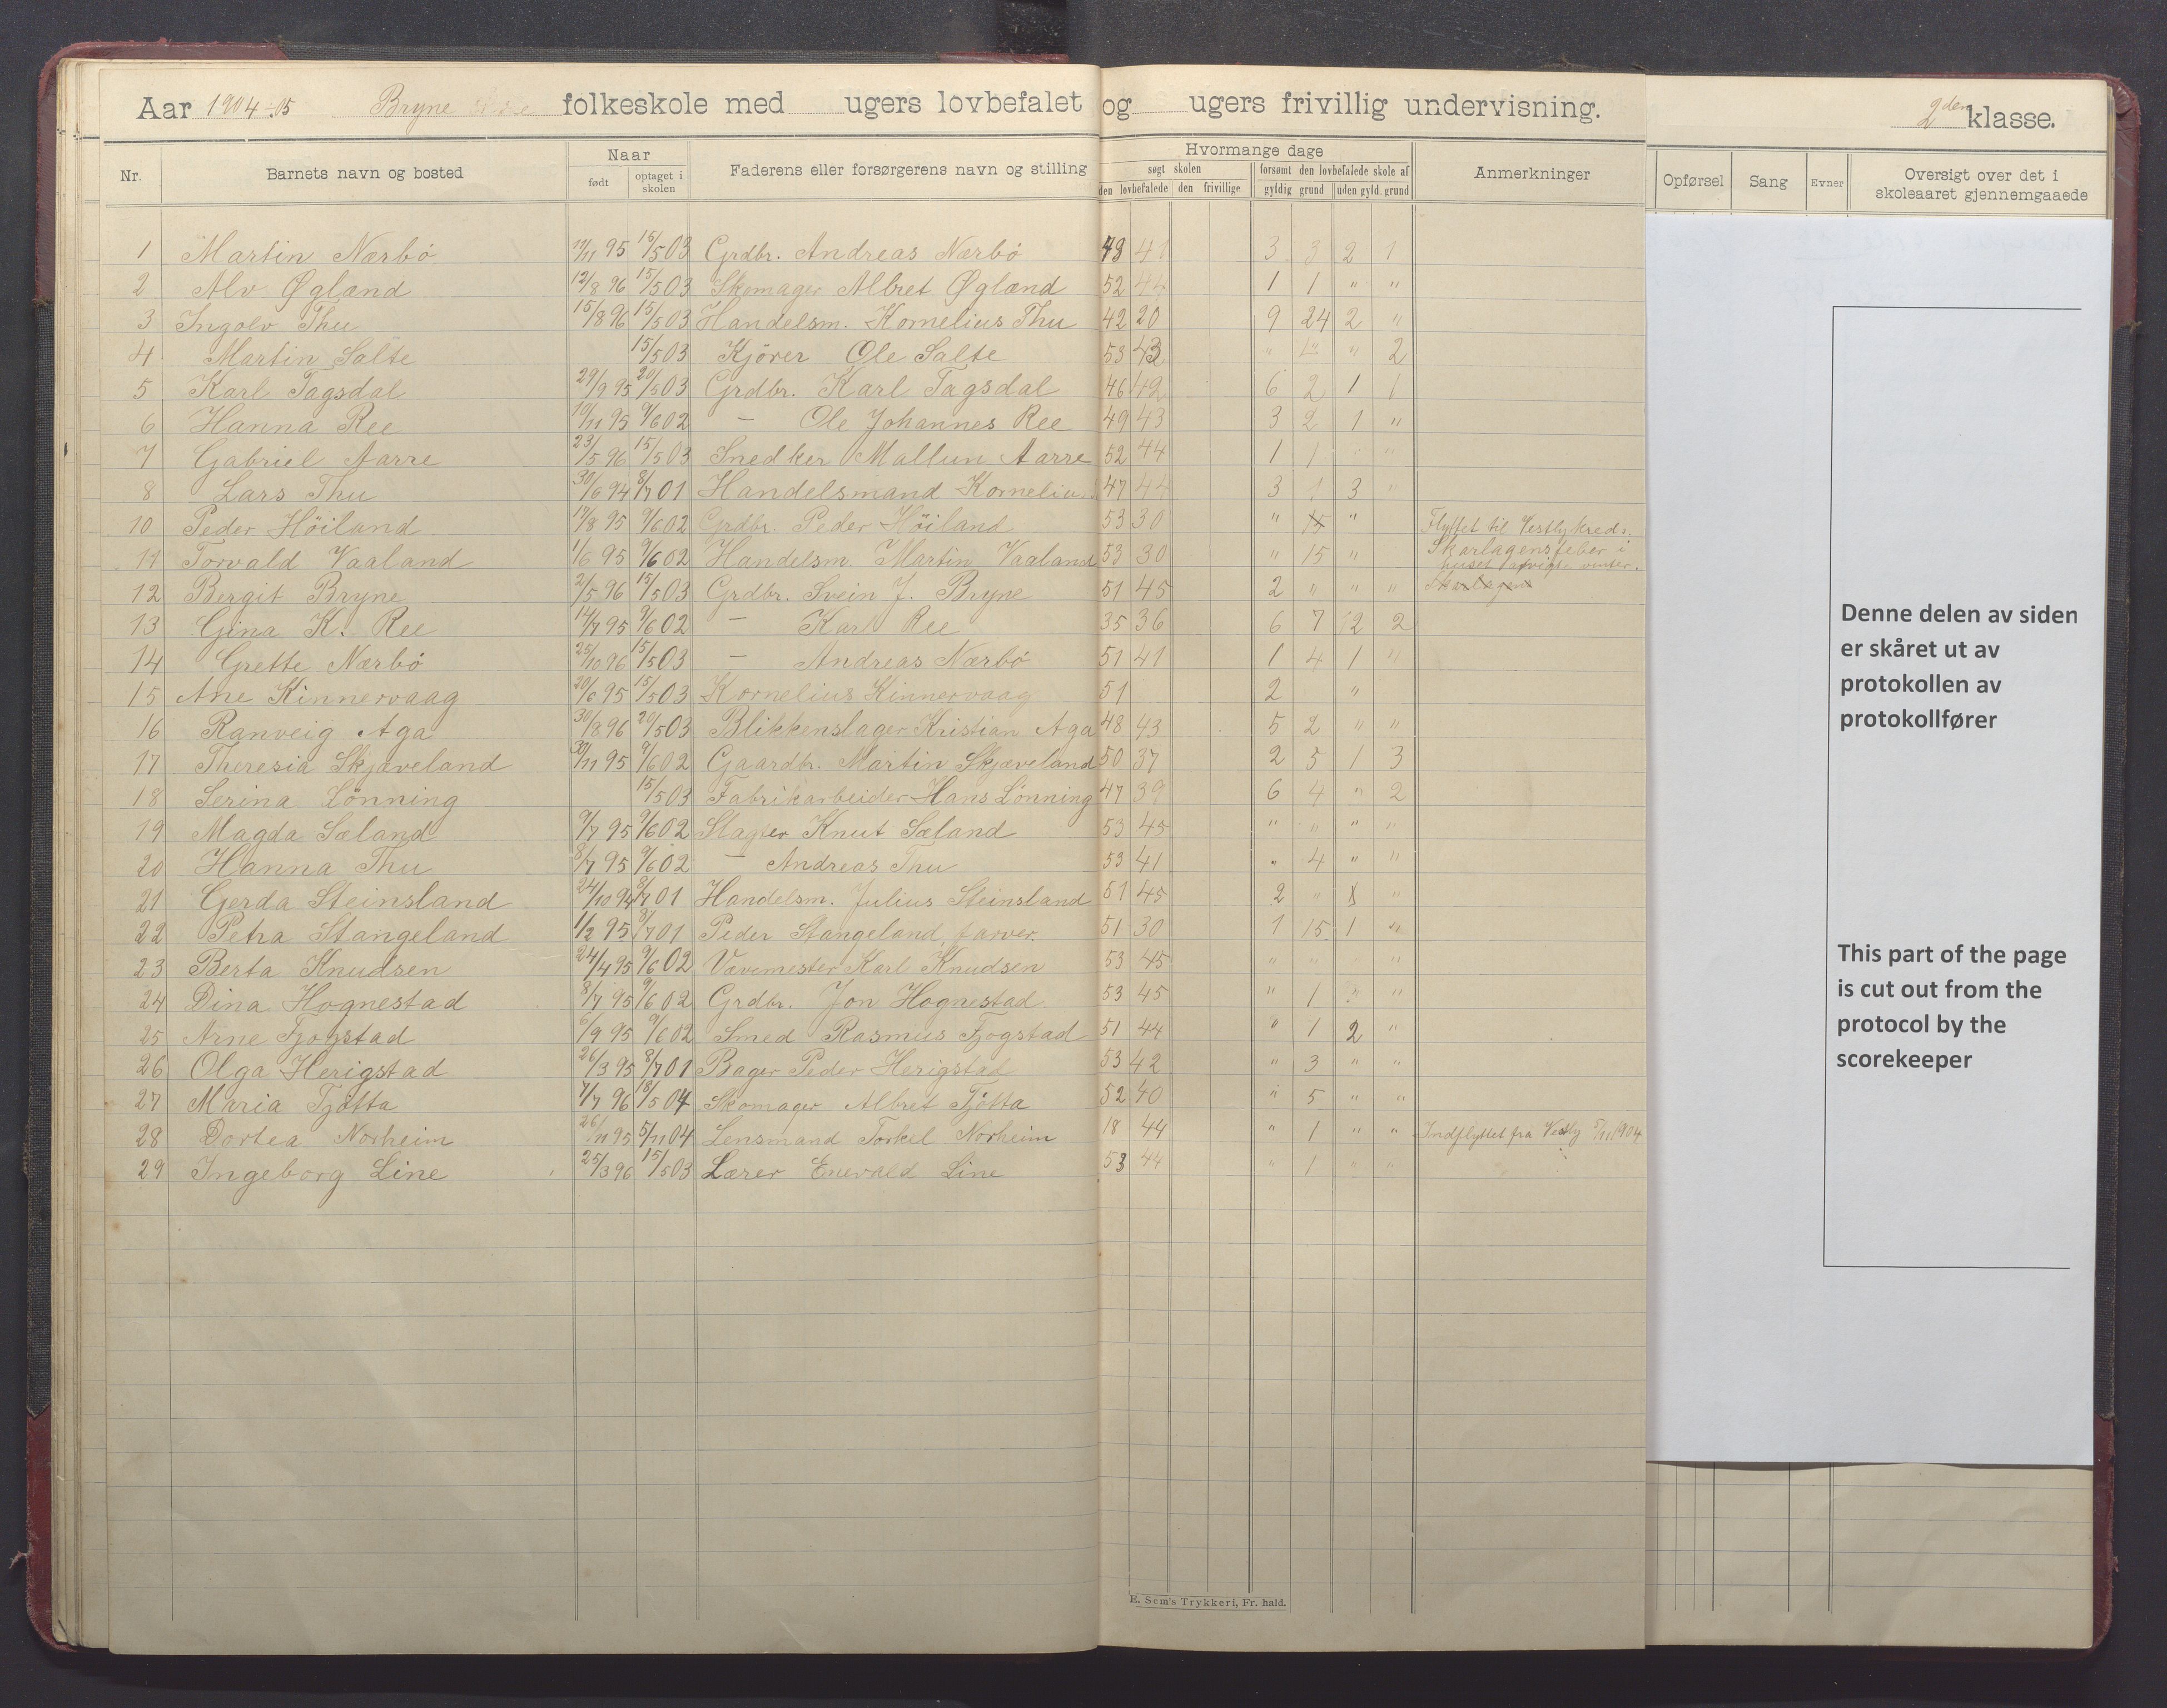 Aar 1904-05 Bryne folkeskole med ugers lovbefalet og ugers frivillig undervisning. 2den klasse.
Nr. Barnets navn og bosted Naar født optaget i skolen Faderens eller forsørgerens navn og stilling Hvormange dage søgt skolen den lovbefalede den frivillige forsømt den lovbefalede skole af gyldig grund uden gyld. grund Anmerkninger Opførsel Sang Evner Oversigt over det i skoleaaret gjennemgaaede
1 Martin Nærbö 95 15/5 03 Grdbr. Andreas Nærbö 49 41 3 3 2 1
2 Alv Øgland 12/8 96 15/5 03 Skomager Albret Øgland 52 44 1 1 " "
3 Ingolv Thu 15/8 96 15/5 03 Handelsm. Kornelius Thu 42 20 9 24 2 "
4 Martin Salte 15/5 03 Kjörer Ole Salte 53 43 " " 2
5 Karl Tagsdal 29/9 95 20/5 03 Grdbr. Karl Tagsdal 46 42 6 2 1 1
6 Hanna Ree 10/11 95 9/6 02 — Ole Johannes Ree 49 43 3 2 1 "
7 Gabriel Aarre 23/5 96 15/5 03 Snedker Aarre 52 44 1 1 " "
8 Lars Thu 30/6 94 8/7 01 Handelsmand Kornelius 47 44 3 1 3 "
10 Peder Höiland 95 9/6 02 Grdbr. Peder Höiland 53 30 " 15 " Flyttet til Vestlykreds.
11 Torvald Vaaland 1/6 95 9/6 02 Handelsm. Martin Vaaland 53 30 " 15 " Skarlagensfeber i
huset vinter.
12 Bergit Bryne 2/5 96 15/5 03 Grdbr. Svein J. Bryne 51 45 2 " " " Skarlagen
13 Gina K. Ree 14/7 95 9/6 02 — Karl Ree 35 36 6 7 12 2
14 Grette Nærbö 25/10 96 15/5 03 — Andreas Nærbö 51 41 1 4 1 "
15 Ane Kinnervaag 20/6 95 15/5 03 Kornelius Kinnervaag 51 2 "
16 Ranveig Aga 30/8 96 20/5 03 Blikkenslager Kristian Aga 48 43 5 2 " "
17 Theresia Skjæveland 30/11 95 9/6 02 Gaardbr. Martin Skjæveland 50 37 2 5 1 3
18 Serina Lönning 15/5 03 Fabrikarbeider Hans Lönning 47 39 6 4 " 2
19 Magda Sæland 9/7 95 9/6 02 Slagter Knut Sæland 53 45 " " " "
20 Hanna Thu 8/7 95 9/6 02 — Andreas Thu 53 41 " 4 " "
21 Gerda Steinsland 24/10 94 8/7 01 Handelsm. Julius Steinsland 51 45 2 " "
22 Petra Stangeland 1/2 95 8/7 01 Peder Stangeland, farver. 51 30 1 15 1 "
23 Berta Knudsen 24/4 95 9/6 02 Vævemester Karl Knudsen 53 45 " " " "
24 Dina Hognestad 8/7 95 9/6 02 Grdbr. Jon Hognestad 53 45 " 1 " "
25 Arne Fjogstad 6/9 95 9/6 02 Smed Rasmus Fjogstad 51 44 " 1 2 "
26 Olga Herigstad 26/3 95 8/7 01 Bager Peder Herigstad 53 42 " 3 " "
27 Maria Tjötta 7/7 96 18/5 04 Skomager Albret Tjötta 52 40 " 5 " "
28 Dortea Norheim 26/11 95 5/11 04 Lensmand Torkel Norheim 18 44 " 1 " " Indflyttet fra Vestly 5/11 1904
29 Ingeborg Line 25/3 96 15/5 03 Lærer Enevald Line 53 44 " 1 " "
E. Sem's Trykkeri, Fr. hald.
Denne delen av siden
er skåret ut av
protokollen av
protokollfører
This part of the page
is cut out from the
protocol by the
scorekeeper